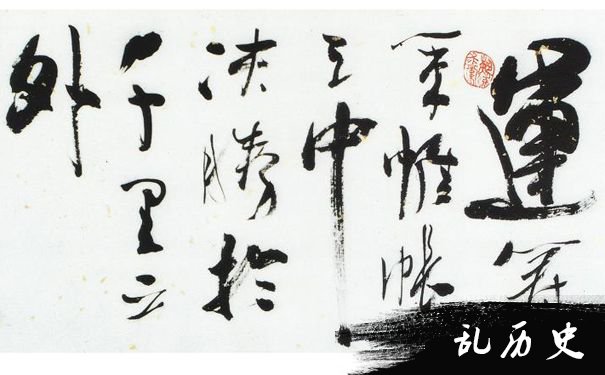 運籌
策帷帳
之中
決勝於
千里之
外
乱历史